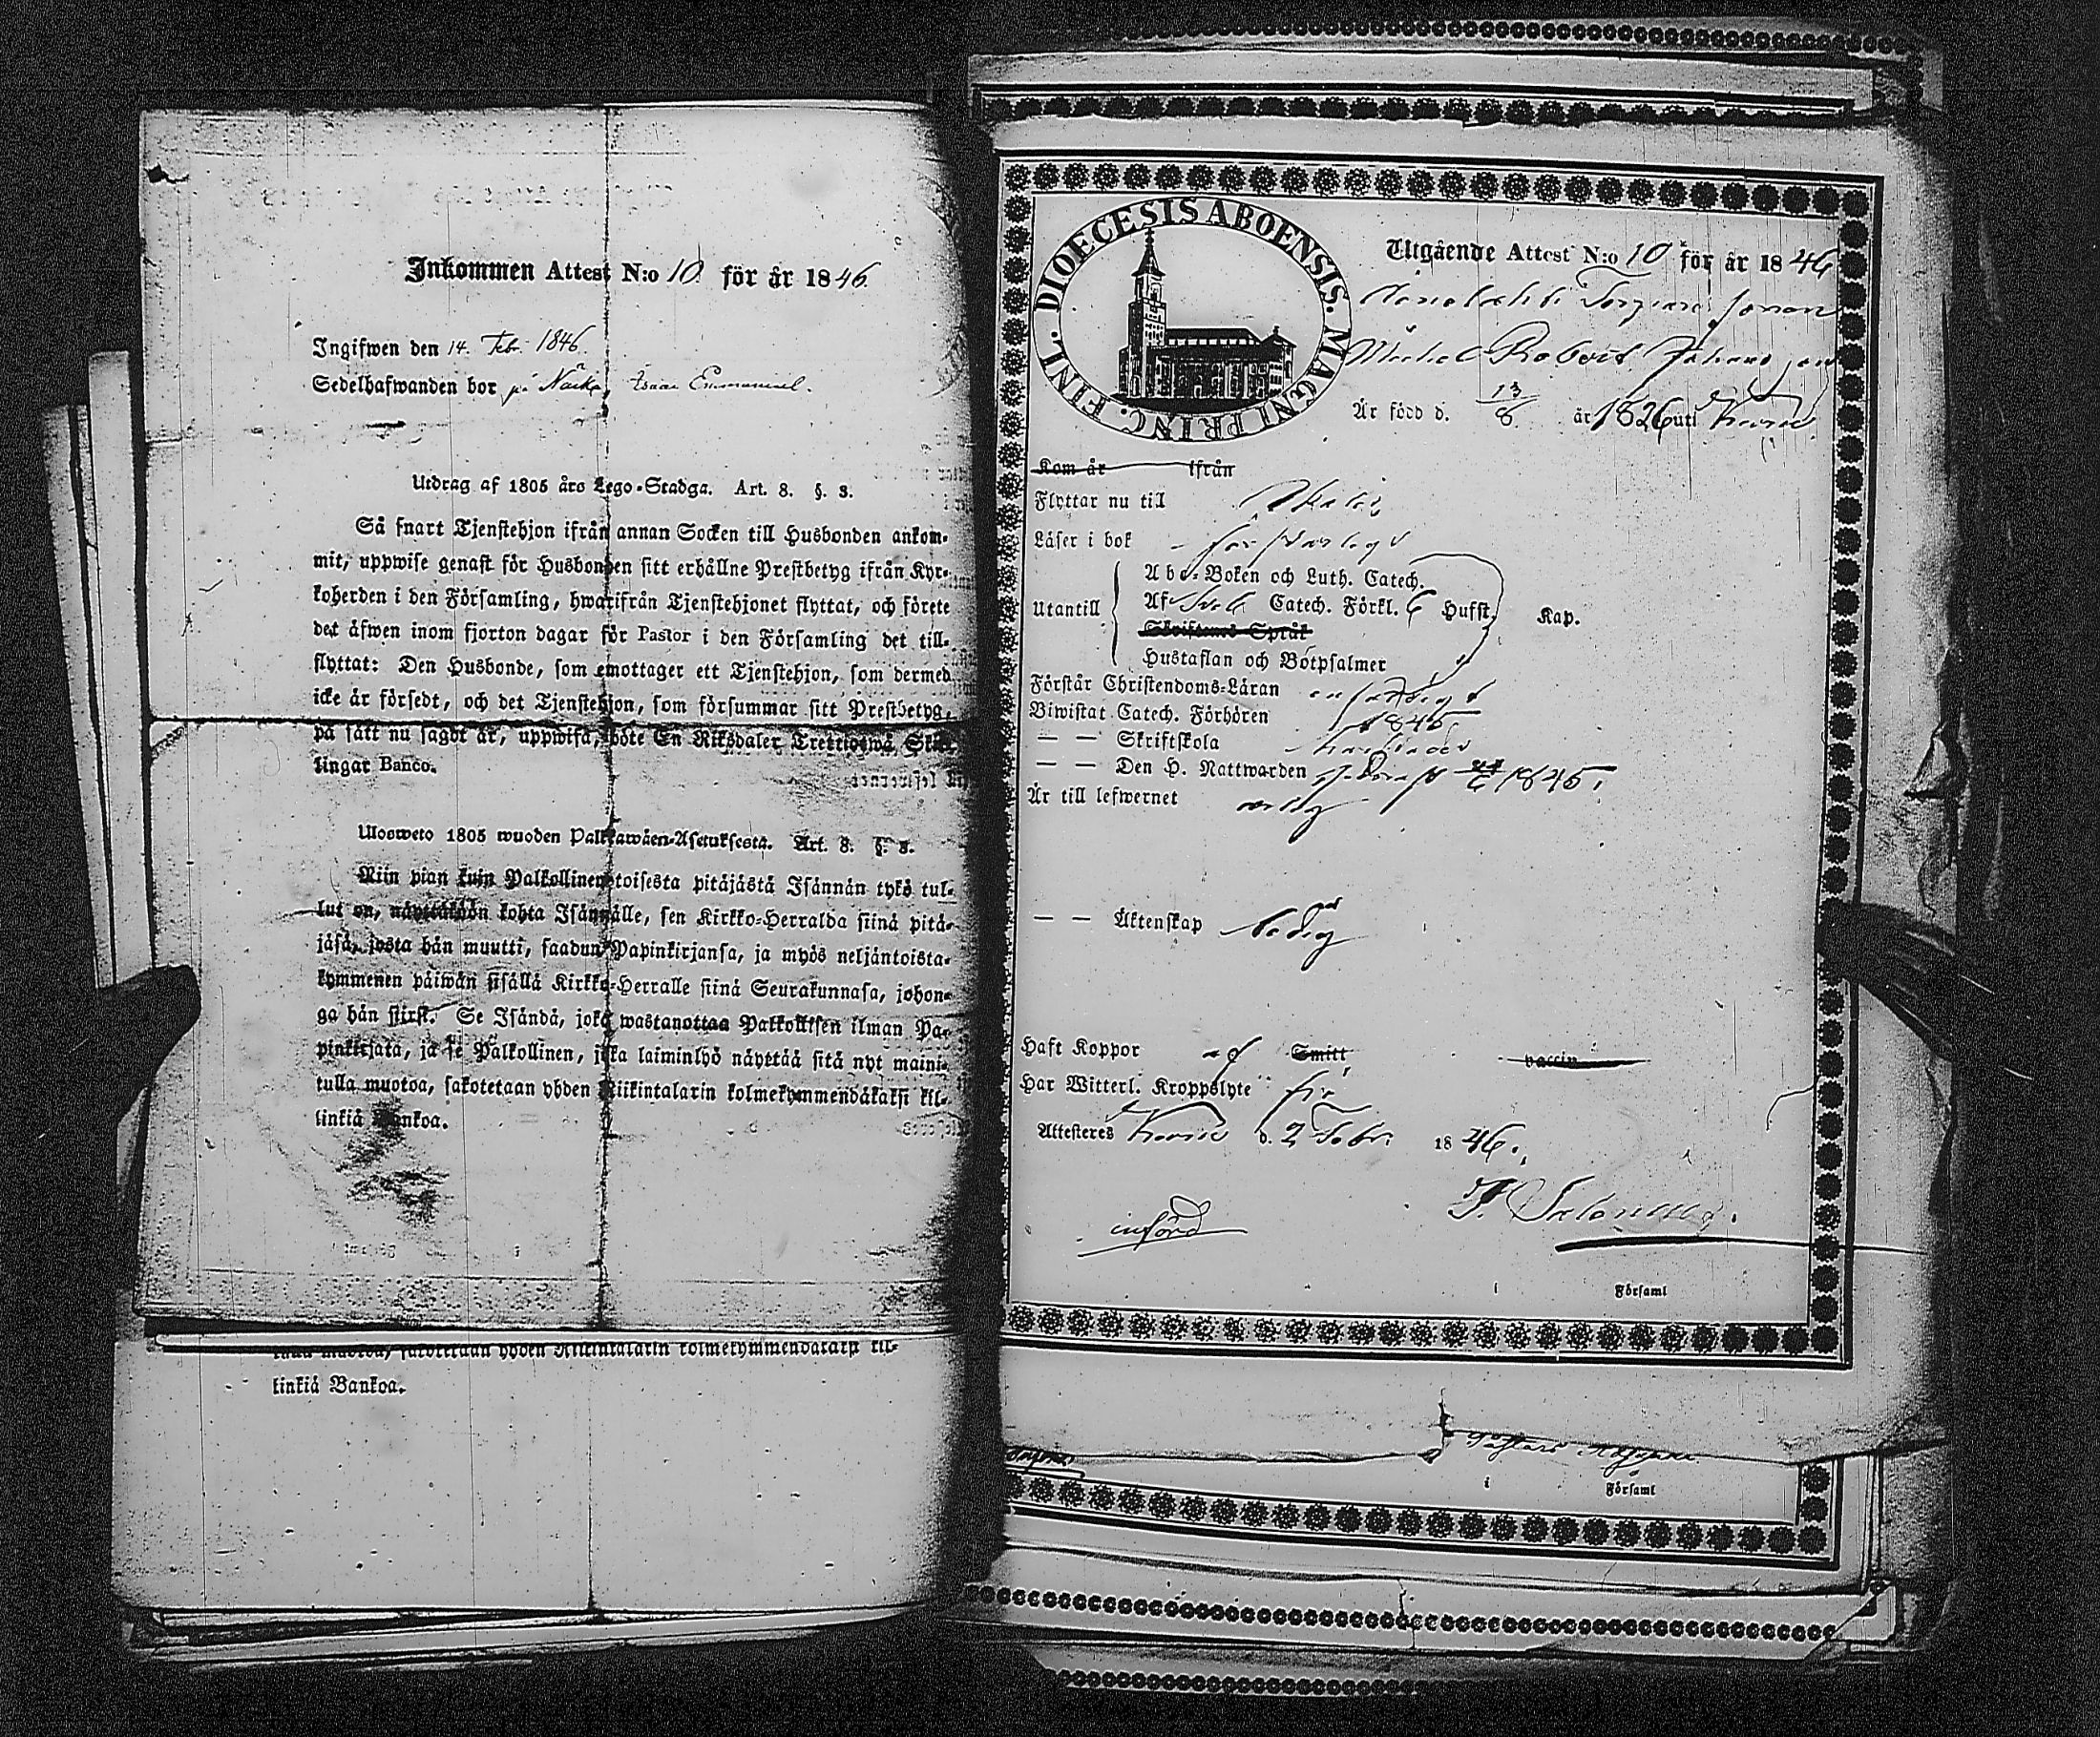 Inkommen Attest N:o 10. för år 1846.
Ingifwen den 14. Febr. 1846.
Sedelhafwanden bor på Isaac Emmanuel.
Utdrag af 1805 års Lego-Stadga. Art. 8. §. 3.
Så snart Tjenstehjon ifrån annan Socken till Husbonden ankom-
mit, uppwise genast för Husbonden sitt erhållne Prestbetyg ifrån Kyr-
koherden i den Församling, hwarifrån Tjenstehjonet flyttat, och förete
det äfwen inom fjorton dagar för Pastor i den Församling det till-
flyttat: Den Husbonde, som emottager ett Tjenstehjon, som dermed
icke är försedt, och det Tjenstehjon, som försummar sitt Prestbetyg,
på sätt nu sagdt är, uppwisa, böte En Riksdaler Trettiotwå Skil-
lingar Banco.
Ulosweto 1805 wuoden Palkkawäen-Asetuksesta. Art. 8. §. 3.
Niin pian kuin Palkollinen toisesta pitäjästä Isännän tykö tul-
lut on, näyttäköön kohta Isännälle, sen Kirkko-Herralda siinä pitä-
jäsä, josta hän muutti, saadun Papinkirjansa, ja myös neljäntoista-
kymmenen päiwän sisällä Kirkko-Herralle siinä Seurakunnasa, johon-
ga hän siirsk. Se Isändä, joka wastanottaa Palkollisen ilman Pa-
pinkirjata, ja se Palkollinen, joka laiminlyö näyttää sitä nyt maini-
tulla muotoa, sakotetaan yhden Riikintalarin kolmekymmendäkaksi kil-
linkiä Bankoa.
tulla muotoa, sakotetaan yhden Riikintalarin kolmekymmendäkaksi kil-
linkiä Bankoa.
DIOECESIS ABOENSIS. MAGNI PRINC. FINL.
Utgående Attest N:o 10 för år 1846
Michel Robert Johansson
Är född d. 13/8 år 1826 uti
Kom år ifrån
Flyttar nu till
Läser i bok försvarligt
Utantill
Abc-Boken och Luth. Catech.
Af Catech. Förkl. 6 Hufst. Kap.
Skriftenes Språk
Hustaflan och Botpsalmer
Förstår Christendoms-Läran
Biwistat Catech. Förhören 1845.
— — Skriftskola
— — Den H. Nattwarden 1845.
Är till lefwernet
— — Äktenskap ledig
Haft Koppor af Smitt vaccin
Har Witterl. Kroppslyte
Attesteres d. 2 Febr. 1846.
införd
i Församl
i Församl